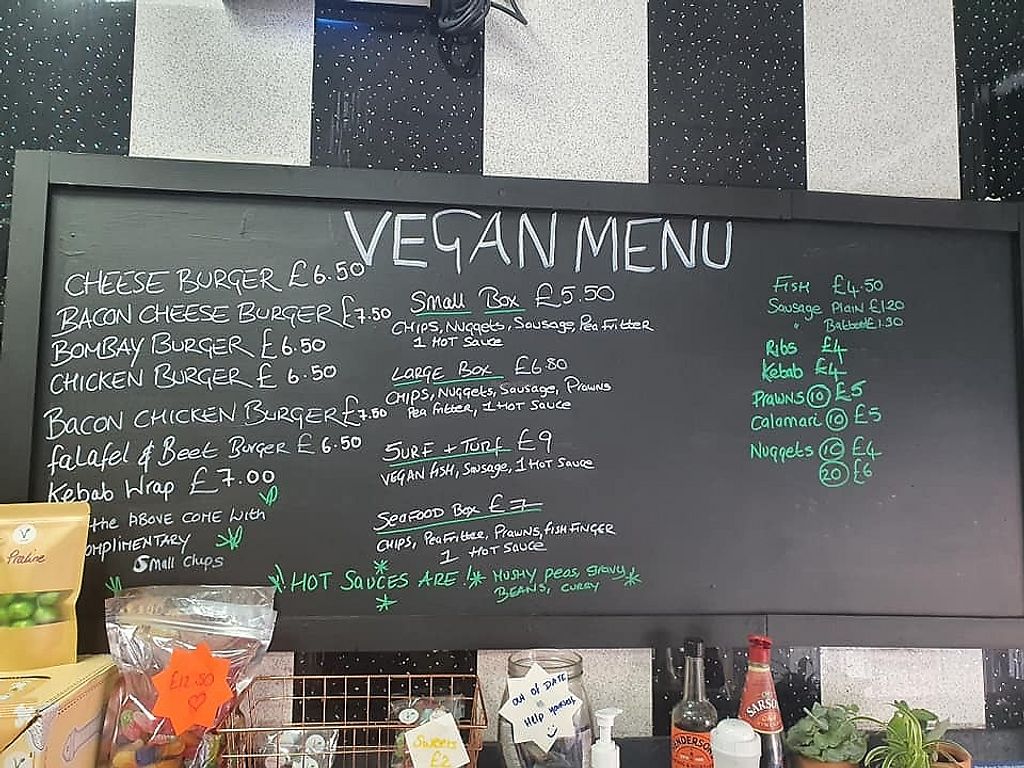 VEGAN MENU
CHEESE BURGER £6.50
BACON CHEESE BURGER £7.50
BOMBAY BURGER £6.50
CHICKEN BURGER £6.50
BACON CHICKEN BURGER £7.50
falafel & Beet Burger £6.50
Kebab Wrap £7.00
the ABOVE COME WITH
OMPLIMENTARY
Small Chips
Small Box £5.50
CHIPS, Nuggets, Sausage, Pea Fritter
1 HOT Sauce
LARGE Box £6.80
CHIPS, Nuggets, Sausage, Prawns
Pea fritter, 1 HOT Sauce
SURF + TURF £9
VEGAN fish, Sausage, 1 HOT Sauce
SEAFOOD Box £7
CHIPS, Pea Fritter, Prawns, fish FINGER
1 HOT Sauce
HOT SAUCES ARE! MUSHY Peas, gravy,
BEANS, CURRY
Fish £4.50
Sausage Plain £1.20
" Batter £1.30
Ribs £4
Kebab £4
Prawns 10 £5
Calamari 10 £5
Nuggets 10 £4
20 £6
V
Praline
£12.50
Sweets
£2
OUT of DATE
Help yourself
NDERSON
SARSO